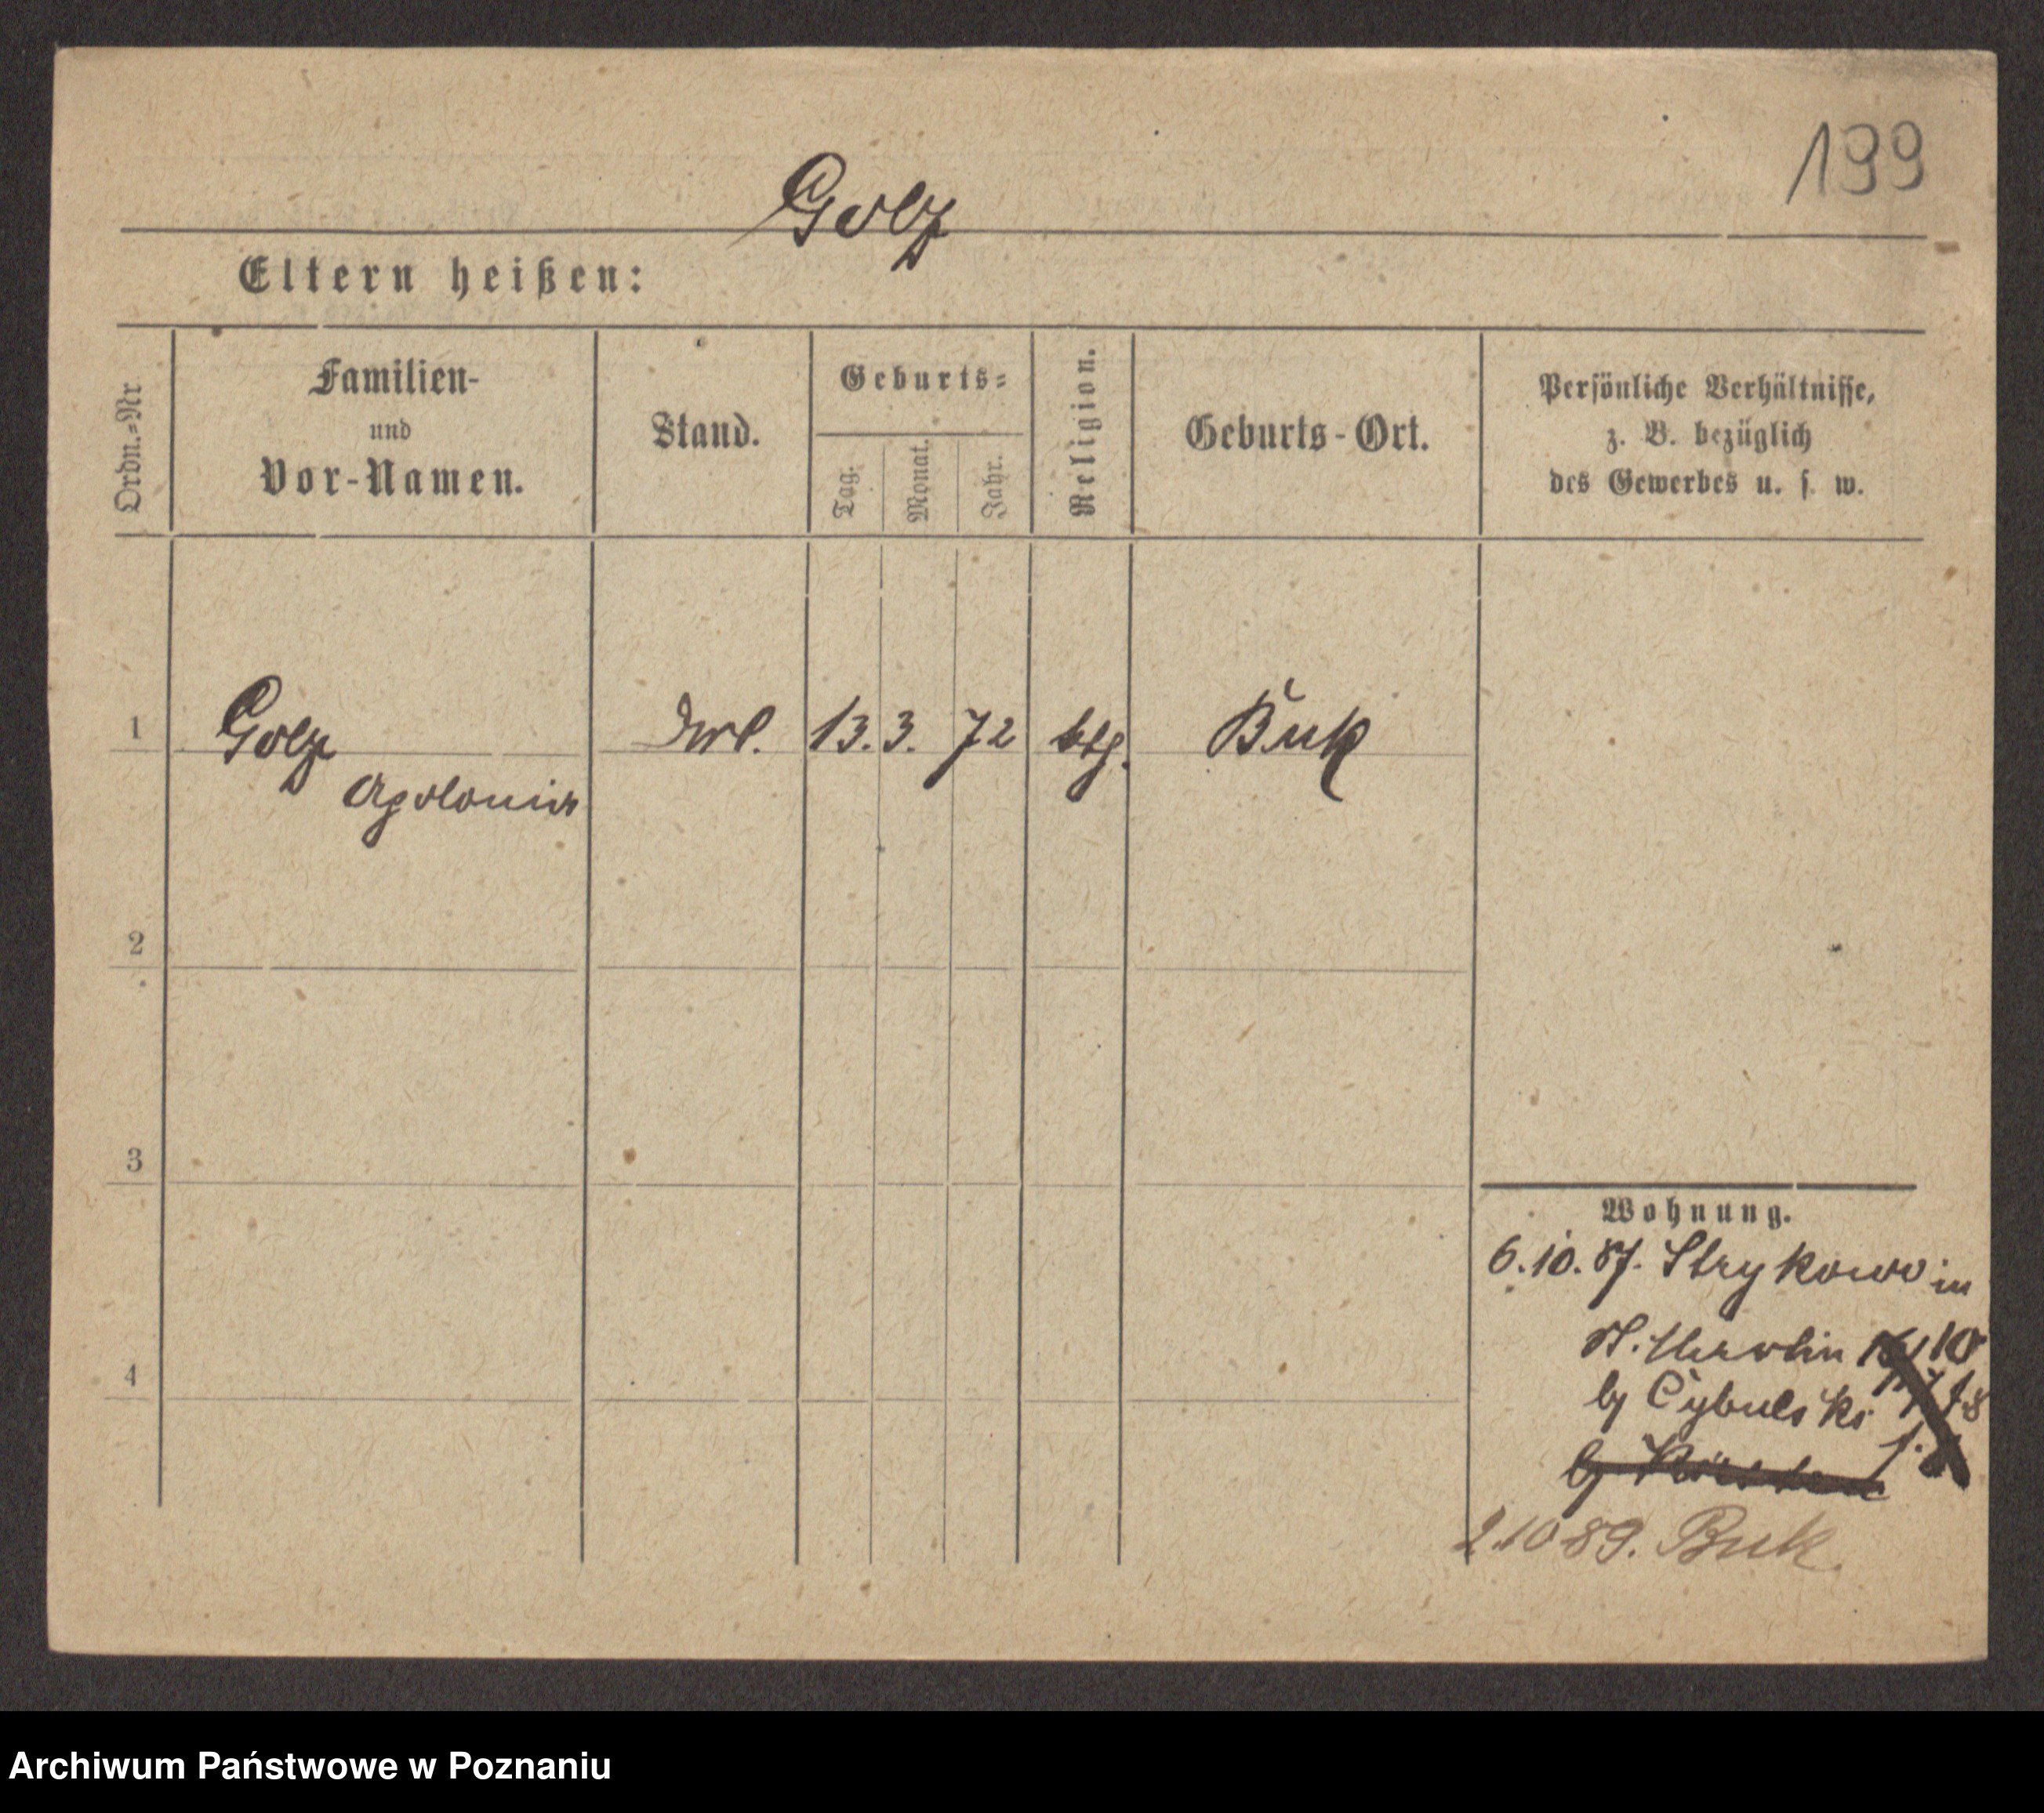 199
Golz
Eltern heißen:
Ordn.-Nr
Familien-
und
Vor-Namen.
Stand.
Geburts-
Tag.
Monat.
Jahr.
Religion.
Geburts-Ort.
Persönliche Verhältnisse,
z. B. bezüglich
des Gewerbes u. s. w.
1 Golz 13. 3. 72 ktg. Buk
Apolonia
2
3
4
Wohnung.
6.10.87. Strykowo in
St. Martin
by Cybulski
by
2.10 89. Buk.
Archiwum Państwowe w Poznaniu